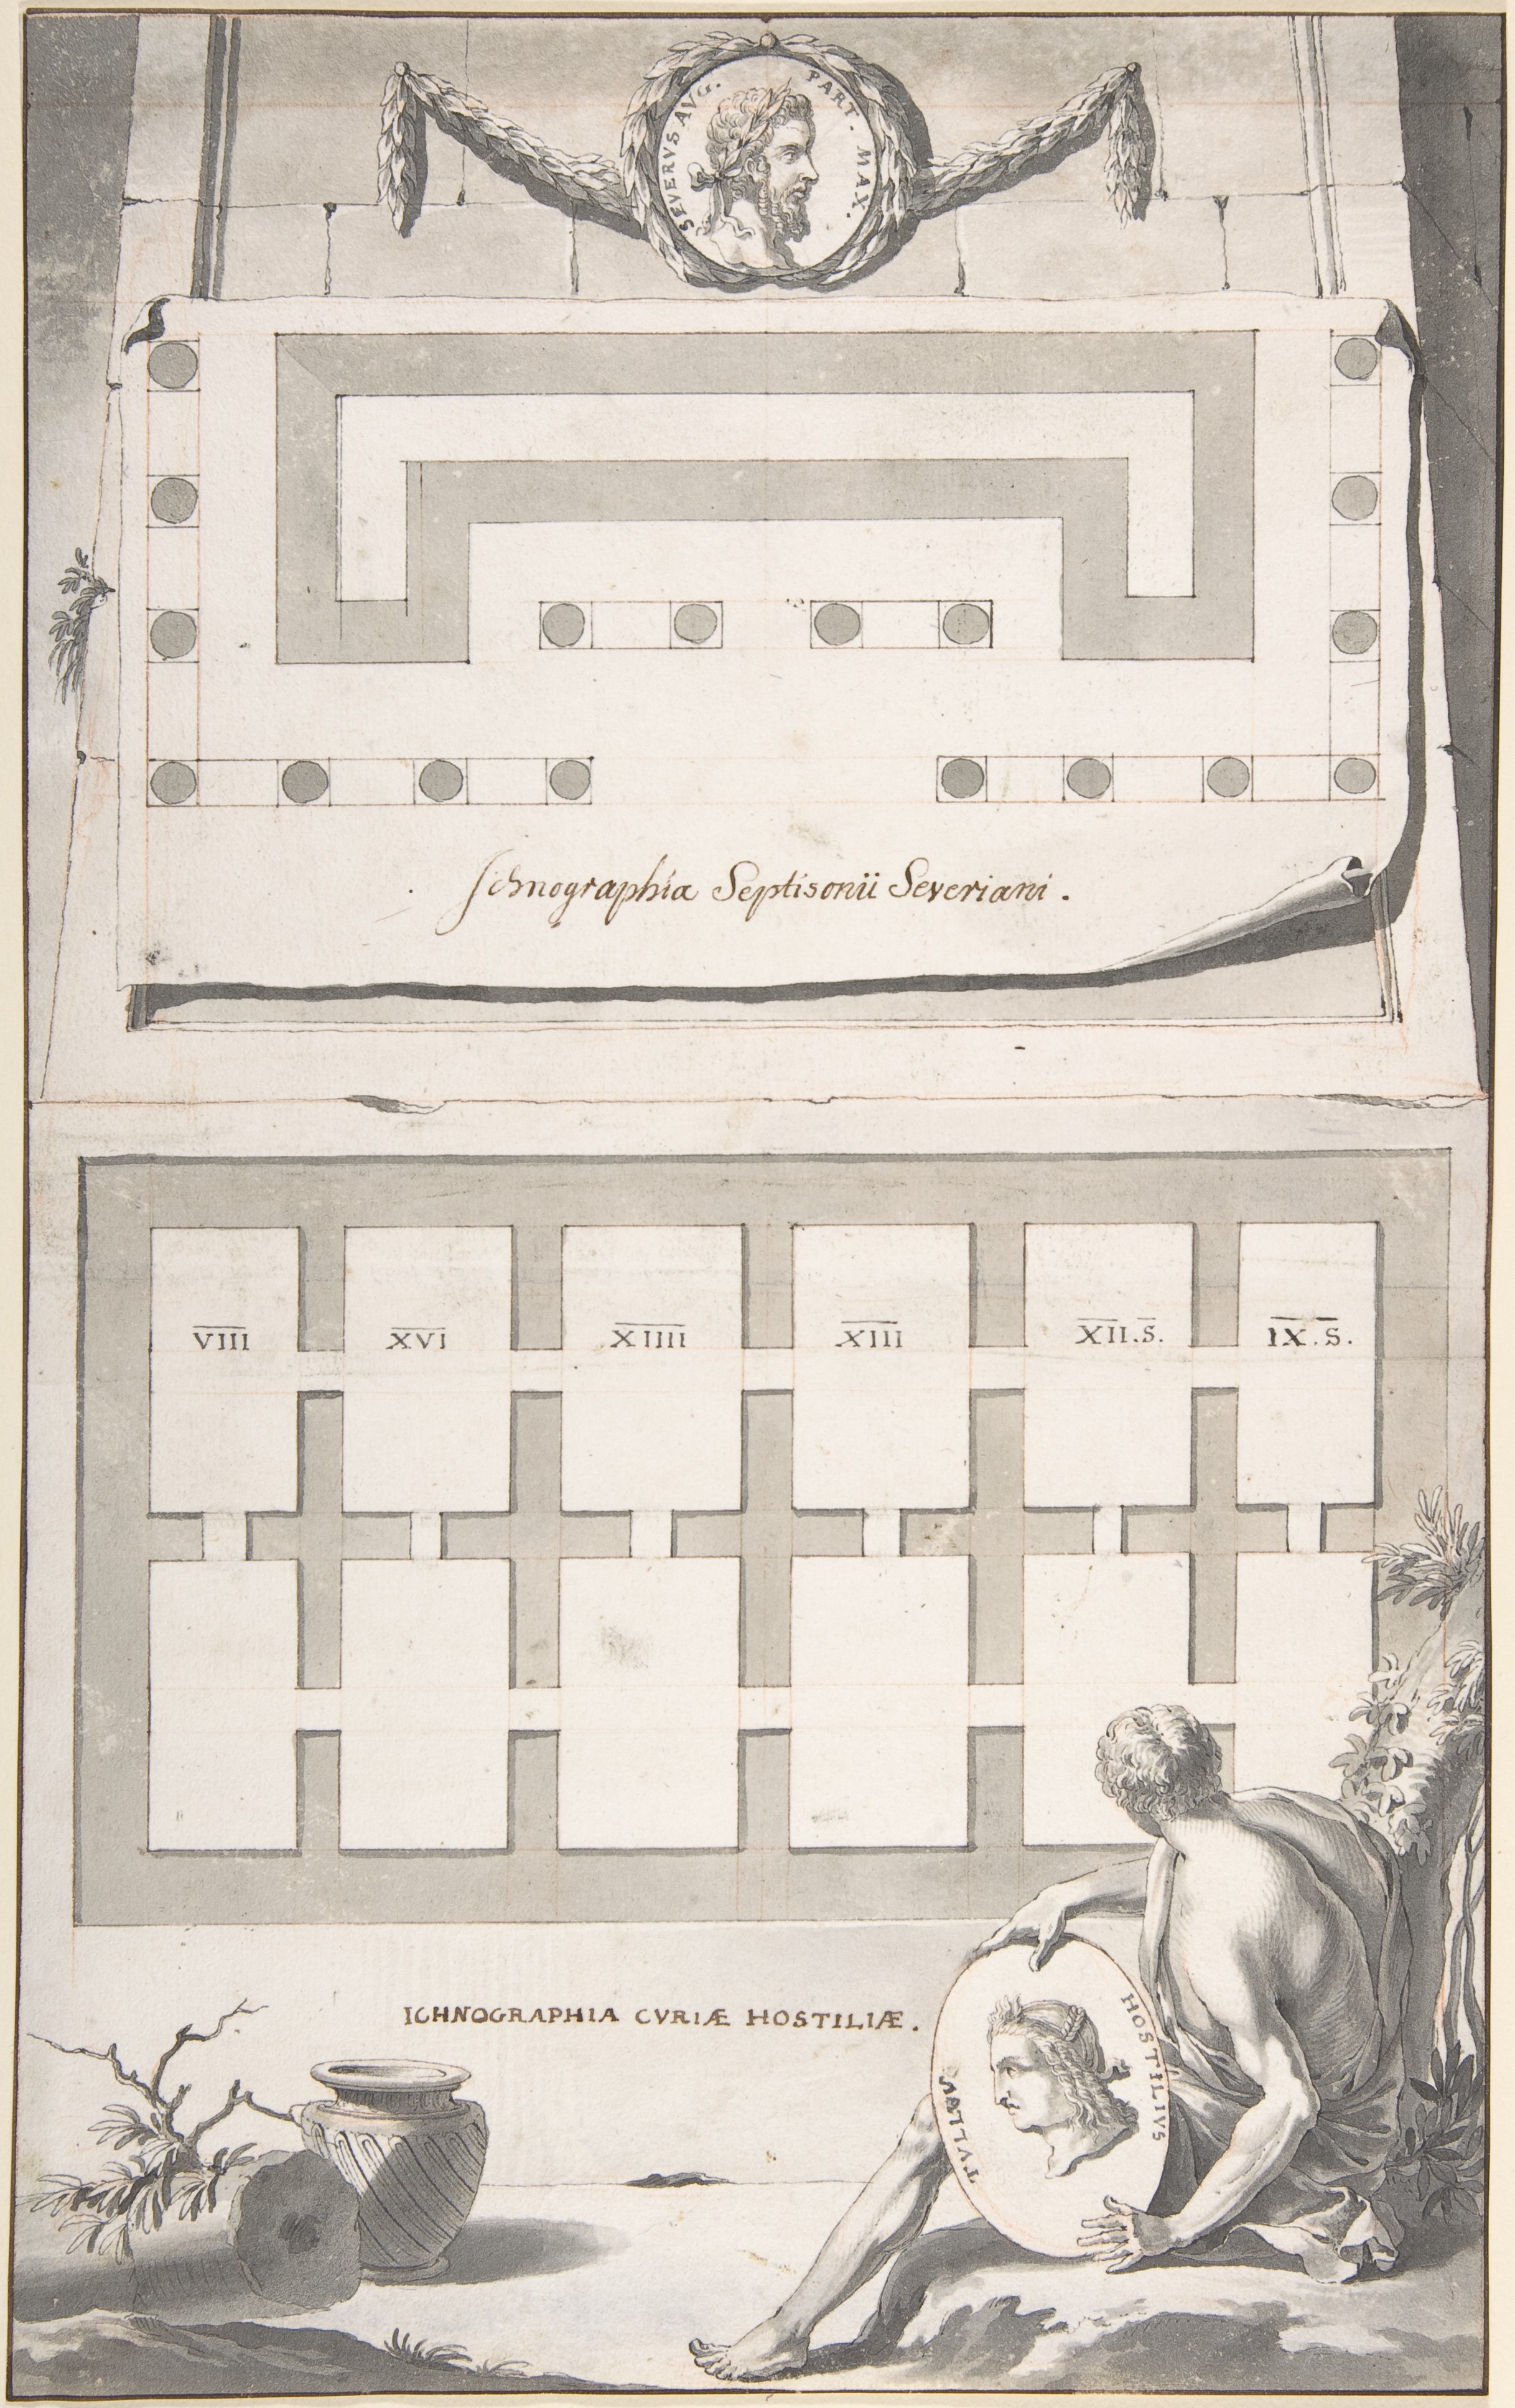 SEVERVS AVG. PART. MAX.
Ichnographia Septisonii Severiani.
V̅I̅I̅I̅ X̅V̅I̅ X̅I̅I̅I̅I̅ X̅I̅I̅I̅ X̅I̅I̅.S̅. I̅X̅.S̅.
ICHNOGRAPHIA CVRIÆ HOSTILIÆ.
TVLLVS HOSTILIVS